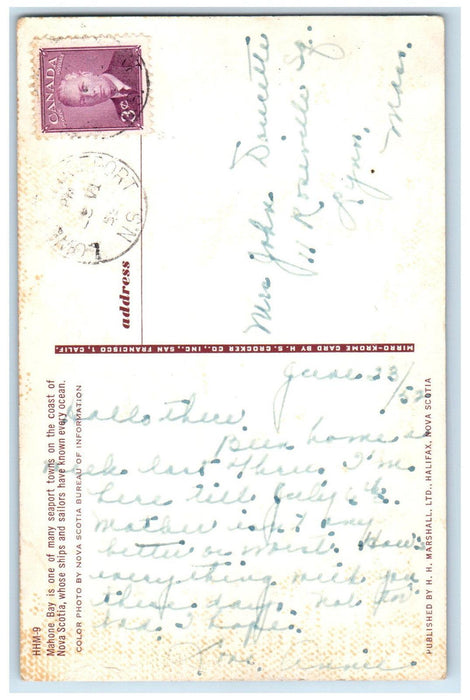 CANADA
3¢
PORT
N.S.
address
Mrs John Doucette
11 Roseville Sq.
Lynn,
Mass.
MIRRO-KROME CARD BY H. S. CROCKER CO., INC., SAN FRANCISCO 1, CALIF.
June 23/52
Hallo there
Been home a
week last Thurs. I'm
here till July
Mother isn't any
better or worst. How's
everything with you
these days. not too
bad I hope.
Love
HHM-9
Mahone Bay is one of many seaport towns on the coast of
Nova Scotia, whose ships and sailors have known every ocean.
COLOR PHOTO BY NOVA SCOTIA BUREAU OF INFORMATION
PUBLISHED BY H. H. MARSHALL, LTD., HALIFAX, NOVA SCOTIA